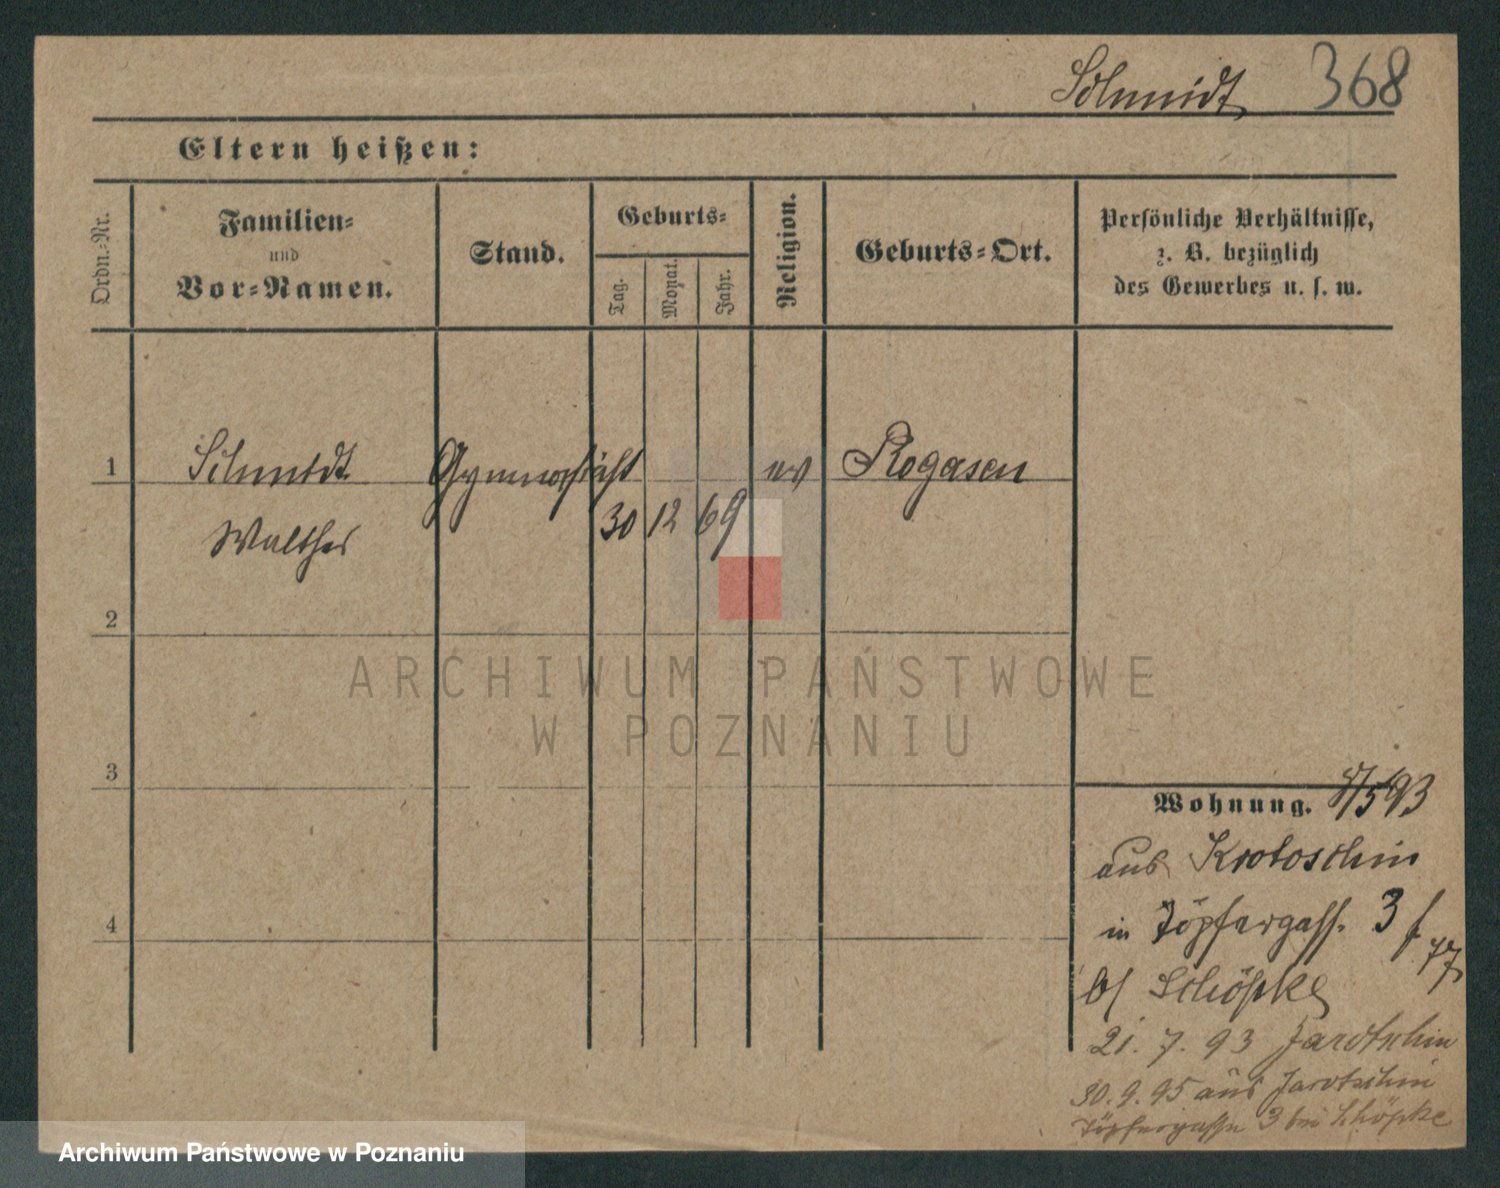 Schmidt 368
Eltern heißen:
Ordn.-Nr.
Familien-
und
Vor-Namen.
Stand.
Geburts-
Tag.
Monat.
Jahr.
Religion.
Geburts-Ort.
Persönliche Verhältnisse,
z. B. bezüglich
des Gewerbes u. s. w.
1 Schmidt Gymnasiast ev Rogasen
Walther 30 12 69
2
ARCHIWUM PAŃSTWOWE
W POZNANIU
3
Wohnung. 5 93
aus Krotoschin
in Töpfergass. 3
4
b/ Schöpke
21. 7. 93 Jarotschin
30. 9. 95 aus Jarotschin
Töpfergasse 3 bei Schöpke
Archiwum Państwowe w Poznaniu